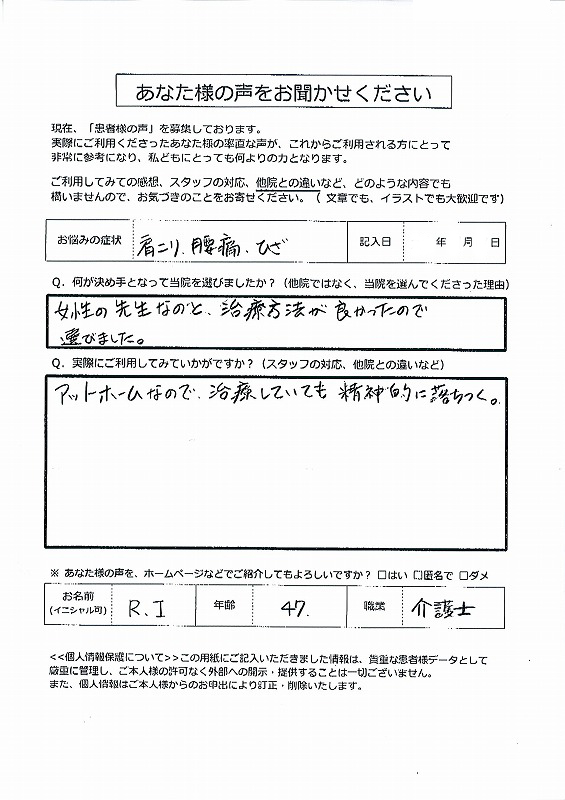 あなた様の声をお聞かせください
現在、「患者様の声」を募集しております。
実際にご利用くださったあなた様の率直な声が、これからご利用される方にとって
非常に参考になり、私どもにとっても何よりの力となります。
ご利用してみての感想、スタッフの対応、他院との違いなど、どのような内容でも
構いませんので、お気づきのことをお寄せください。（ 文章でも、イラストでも大歓迎です）
お悩みの症状 肩こり、腰痛、ひざ 記入日 年 月 日
Q．何が決め手となって当院を選びましたか？（他院ではなく、当院を選んでくださった理由）
女性の先生なのと、治療方法が良かったので
選びました。
Q．実際にご利用してみていかがですか？（スタッフの対応、他院との違いなど）
アットホームなので、治療していても精神的に落ちつく。
※ あなた様の声を、ホームページなどでご紹介してもよろしいですか？ □はい □匿名で □ダメ
お名前
(イニシャル可) R.I 年齢 47. 職業 介護士
<<個人情報保護について>>この用紙にご記入いただきました情報は、貴重な患者様データとして
厳重に管理し、ご本人様の許可なく外部への開示・提供することは一切ございません。
また、個人情報はご本人様からのお申出により訂正・削除いたします。